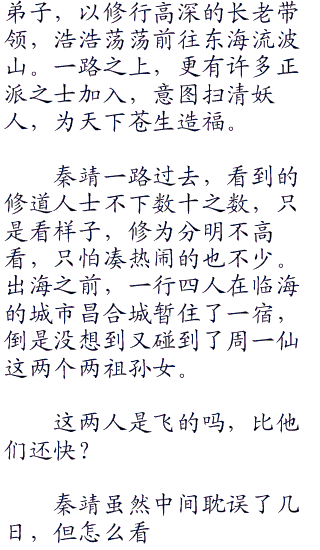 弟子，以修行高深的长老带
领，浩浩荡荡前往东海流波
山。一路之上，更有许多正
派之士加入，意图扫清妖
人，为天下苍生造福。
秦靖一路过去，看到的
修道人士不下数十之数，只
是看样子，修为分明不高
看，只怕凑热闹的也不少。
出海之前，一行四人在临海
的城市昌合城暂住了一宿，
倒是没想到又碰到了周一仙
这两个两祖孙女。
这两人是飞的吗，比他
们还快？
秦靖虽然中间耽误了几
日，但怎么看